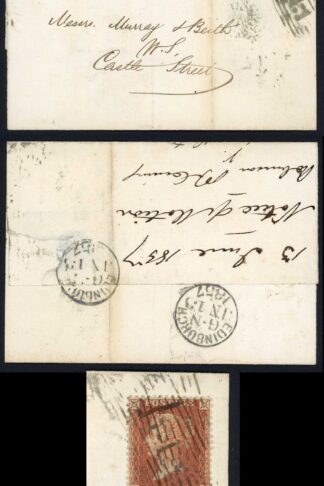 Messrs. Murray & Beith
W.S.
Castle Street
13 June 1857
Notice of Motion
EDINBURGH
G-N
JN 13
1857
EDINBURGH
G-N
JN 13
1857